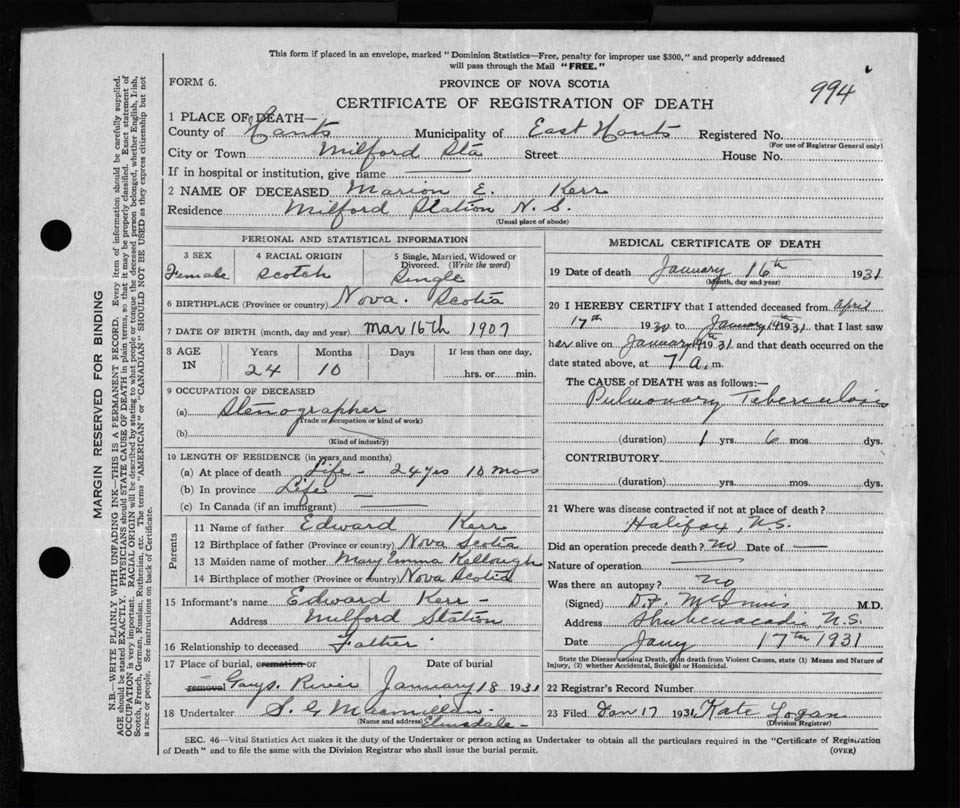 This form if placed in an envelope, marked "Dominion Statistics—Free, penalty for improper use $300," and properly addressed
will pass through the Mail "FREE."
FORM 6.
PROVINCE OF NOVA SCOTIA
994
CERTIFICATE OF REGISTRATION OF DEATH
1 PLACE OF DEATH—
County of Hants Municipality of East Hants Registered No.
(For use of Registrar General only)
City or Town Milford Sta Street House No.
If in hospital or institution, give name —
2 NAME OF DECEASED Marion E. Kerr
Residence Milford Station N. S.
(Usual place of abode)
PERSONAL AND STATISTICAL INFORMATION
3 SEX 4 RACIAL ORIGIN 5 Single, Married, Widowed or
Divorced. (Write the word)
Female Scotch Single
6 BIRTHPLACE (Province or country) Nova Scotia
7 DATE OF BIRTH (month, day and year) Mar 16th 1907
8 AGE Years Months Days If less than one day,
IN 24 10 hrs. or min.
9 OCCUPATION OF DECEASED
(a) Stenographer
(Trade or occupation or kind of work)
(b)
(Kind of industry)
10 LENGTH OF RESIDENCE (in years and months)
(a) At place of death Life - 24 yrs 10 mos
(b) In province Life
(c) In Canada (if an immigrant) —
Parents
11 Name of father Edward Kerr
12 Birthplace of father (Province or country) Nova Scotia
13 Maiden name of mother May Emma
14 Birthplace of mother (Province or country) Nova Scotia
15 Informant's name Edward Kerr
Address Milford Station
16 Relationship to deceased Father
17 Place of burial, cremation or Date of burial
removal Gays River January 18 1931
18 Undertaker S. G. Macmillan
(Name and address) Elmsdale
MEDICAL CERTIFICATE OF DEATH
19 Date of death January 16th 1931
(Month, day and year)
20 I HEREBY CERTIFY that I attended deceased from April
17th 1930 to January 14th 1931, that I last saw
her alive on January 14th 1931 and that death occurred on the
date stated above, at 7 a. m.
The CAUSE of DEATH was as follows:—
Pulmonary Tuberculosis
(duration) 1 yrs 6 mos. dys.
CONTRIBUTORY
(duration) yrs. mos. dys.
21 Where was disease contracted if not at place of death?
Halifax, N.S.
Did an operation precede death? No Date of —
Nature of operation —
Was there an autopsy? No
(Signed) D.F. McInnis M.D.
Address Shubenacadie N.S.
Date Jany 17th 1931
State the Disease causing Death, or in death from Violent Causes, state (1) Means and Nature of
Injury, (2) whether Accidental, Suicidal or Homicidal.
22 Registrar's Record Number
23 Filed Jan 17 1931 Kate Logan
(Division Registrar)
SEC. 46—Vital Statistics Act makes it the duty of the Undertaker or person acting as Undertaker to obtain all the particulars required in the "Certificate of Registration
of Death" and to file the same with the Division Registrar who shall issue the burial permit. (OVER)
MARGIN RESERVED FOR BINDING
N.B.—WRITE PLAINLY WITH UNFADING INK—THIS IS A PERMANENT RECORD. Every item of information should be carefully supplied.
AGE should be stated EXACTLY. PHYSICIANS should STATE CAUSE OF DEATH in plain terms, so that it may be properly classified. Exact statement of
OCCUPATION is very important. RACIAL ORIGIN will be described by stating to what people or tongue the deceased person belonged, whether English, Irish,
Scotch, French, German, Russian, Ruthenian, etc. The terms "AMERICAN" or "CANADIAN" SHOULD NOT BE USED as they express citizenship but not
a race or people. See instructions on back of Certificate.